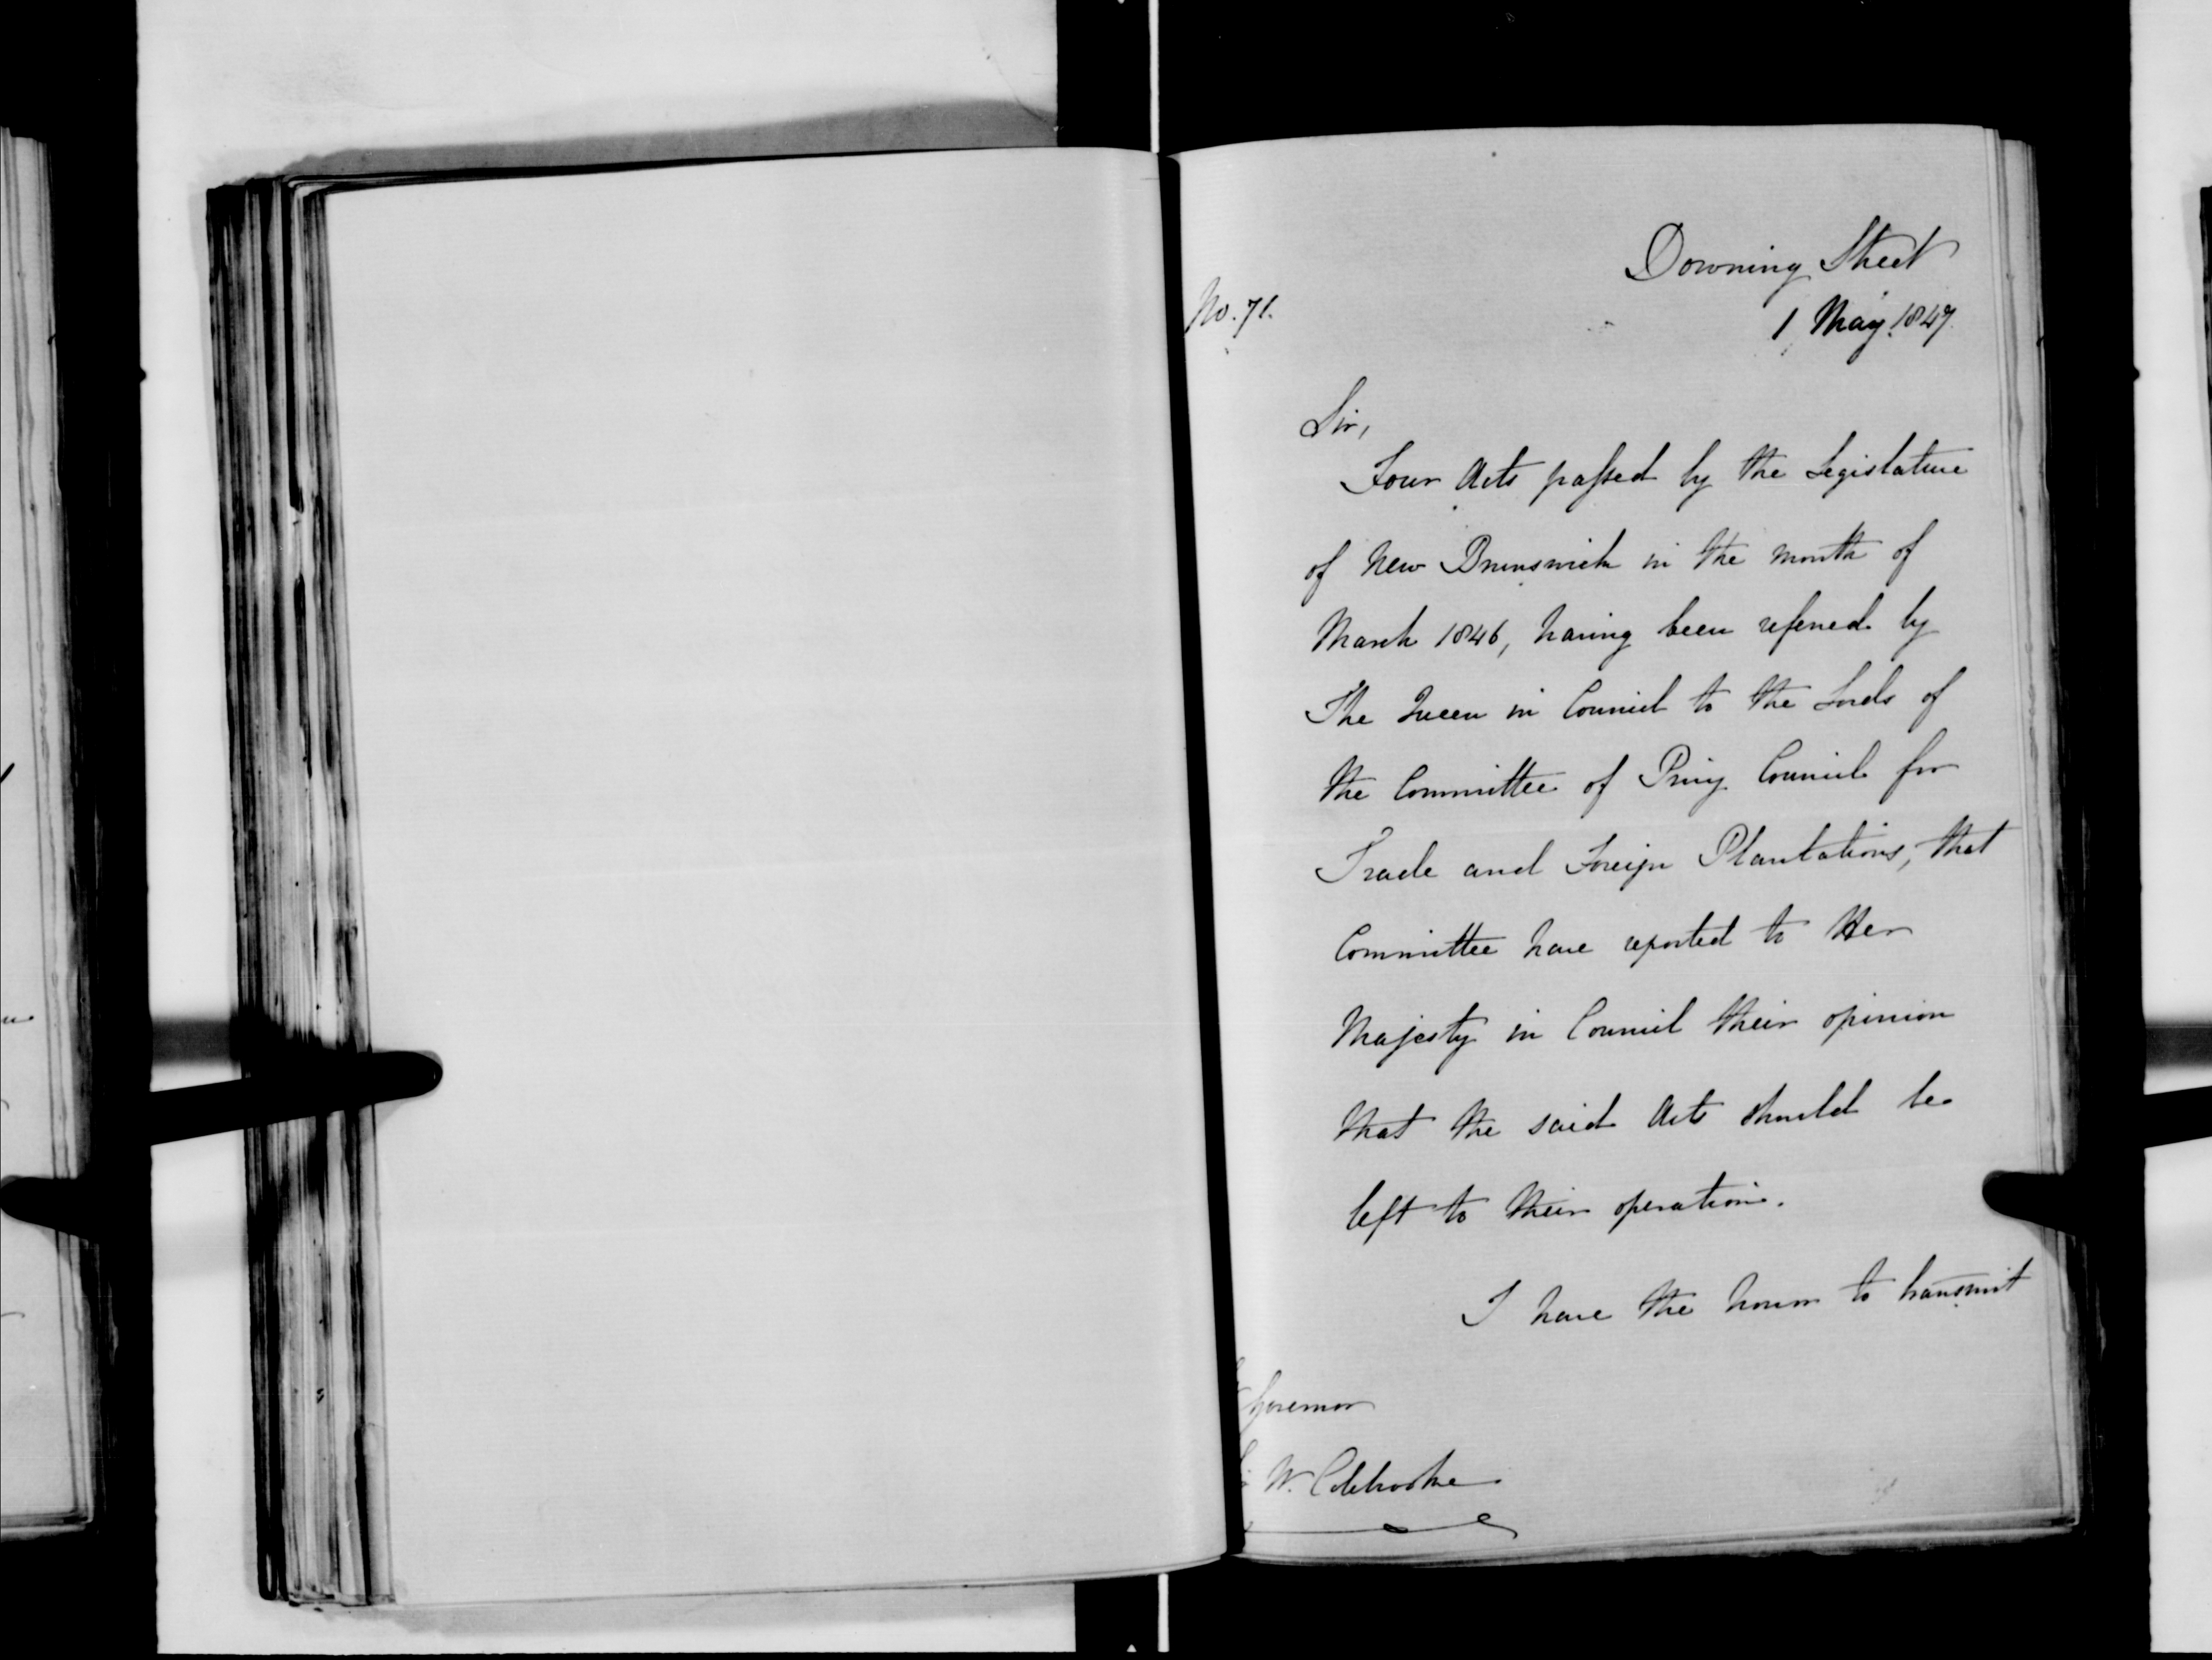 Downing Street
No. 71.
1 May 1847.
Sir,
Four Acts passed by the Legislature
of New Brunswick in the month of
March 1846, having been referred by
The Queen in Council to the Lords of
the Committee of Privy Council for
Trade and Foreign Plantations, that
Committee have reported to Her
Majesty in Council their opinion
that the said Acts should be
left to their operation.
I have the honor to transmit
Governor
W. Colebrooke